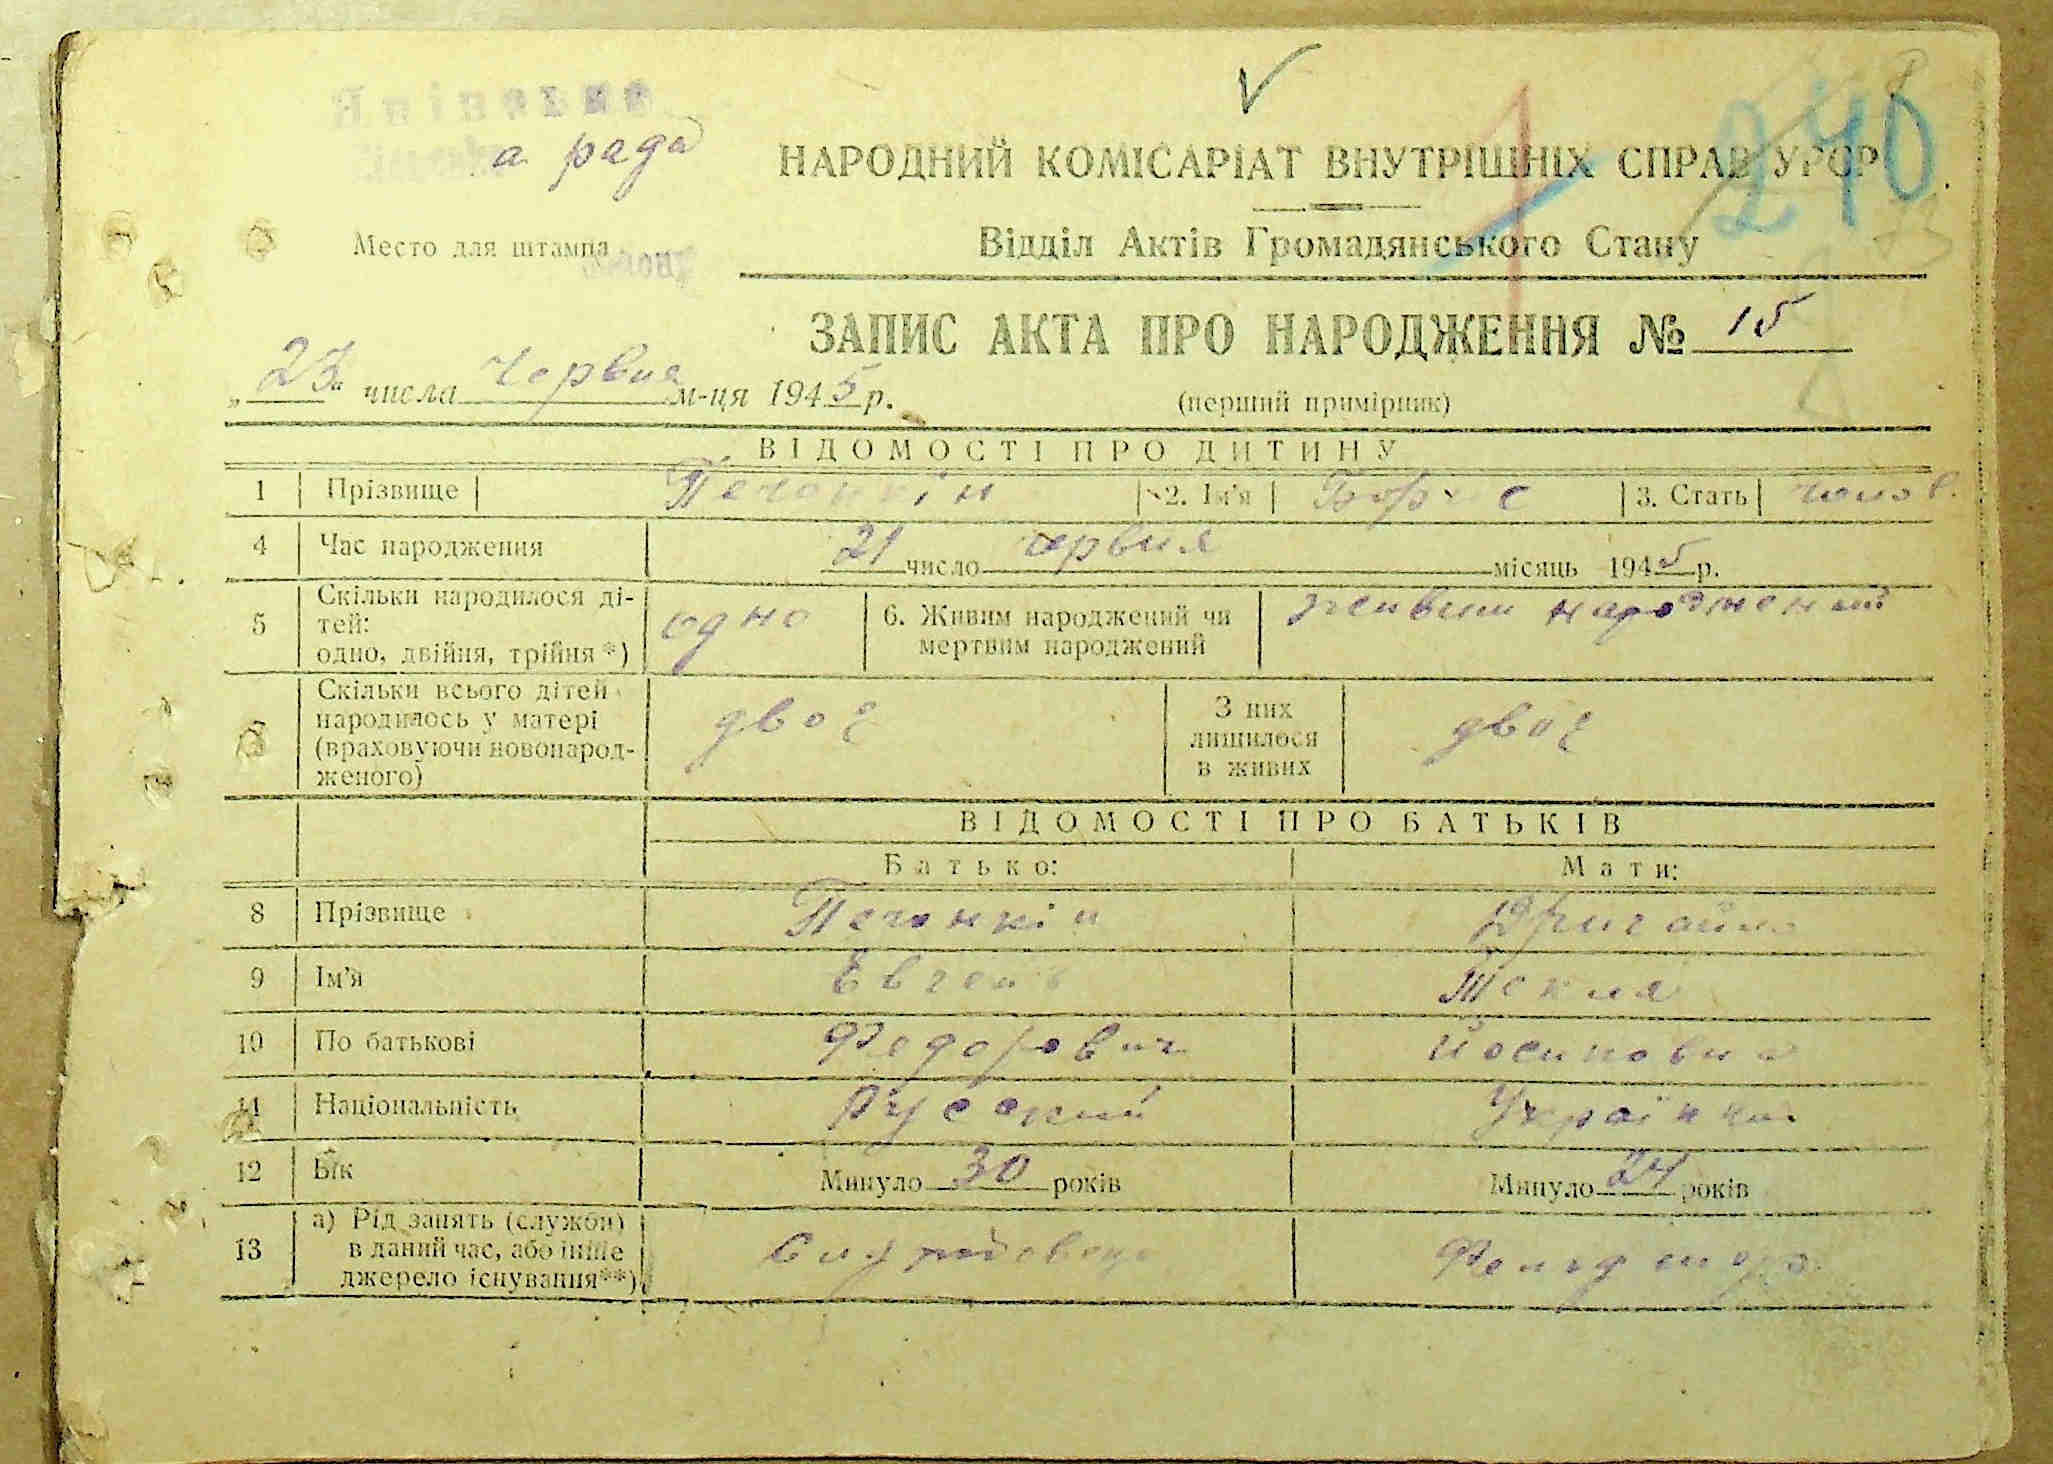 а рада
240
НАРОДНИЙ КОМІСАРІАТ ВНУТРІШНІХ СПРАВ УРСР
Место для штампа
Відділ Актів Громадянського Стану
ЗАПИС АКТА ПРО НАРОДЖЕННЯ № 15
„23" числа червня м-ця 1945 р.
(перший примірник)
ВІДОМОСТІ ПРО ДИТИНУ
1 Прізвище Печонкін 2. Ім'я Борис 3. Стать чолов.
4 Час народження 21 число червня місяць 1945 р.
5 Скільки народилося ді-
тей:
одно, двійня, трійня *) одно
6. Живим народжений чи
мертвим народжений живим народжений
7 Скільки всього дітей
народилось у матері
(враховуючи новонарод-
женого) двоє
З них
лишилося
в живих двоє
ВІДОМОСТІ ПРО БАТЬКІВ
Батько: Мати:
8 Прізвище Печонкін
9 Ім'я Евгени Текля
10 По батькові Федорович Йосиповна
11 Національність Русский Українка
12 Вік Минуло 30 років Минуло 24 років
13 а) Рід занять (служби)
в даний час, або інше
джерело існування **)